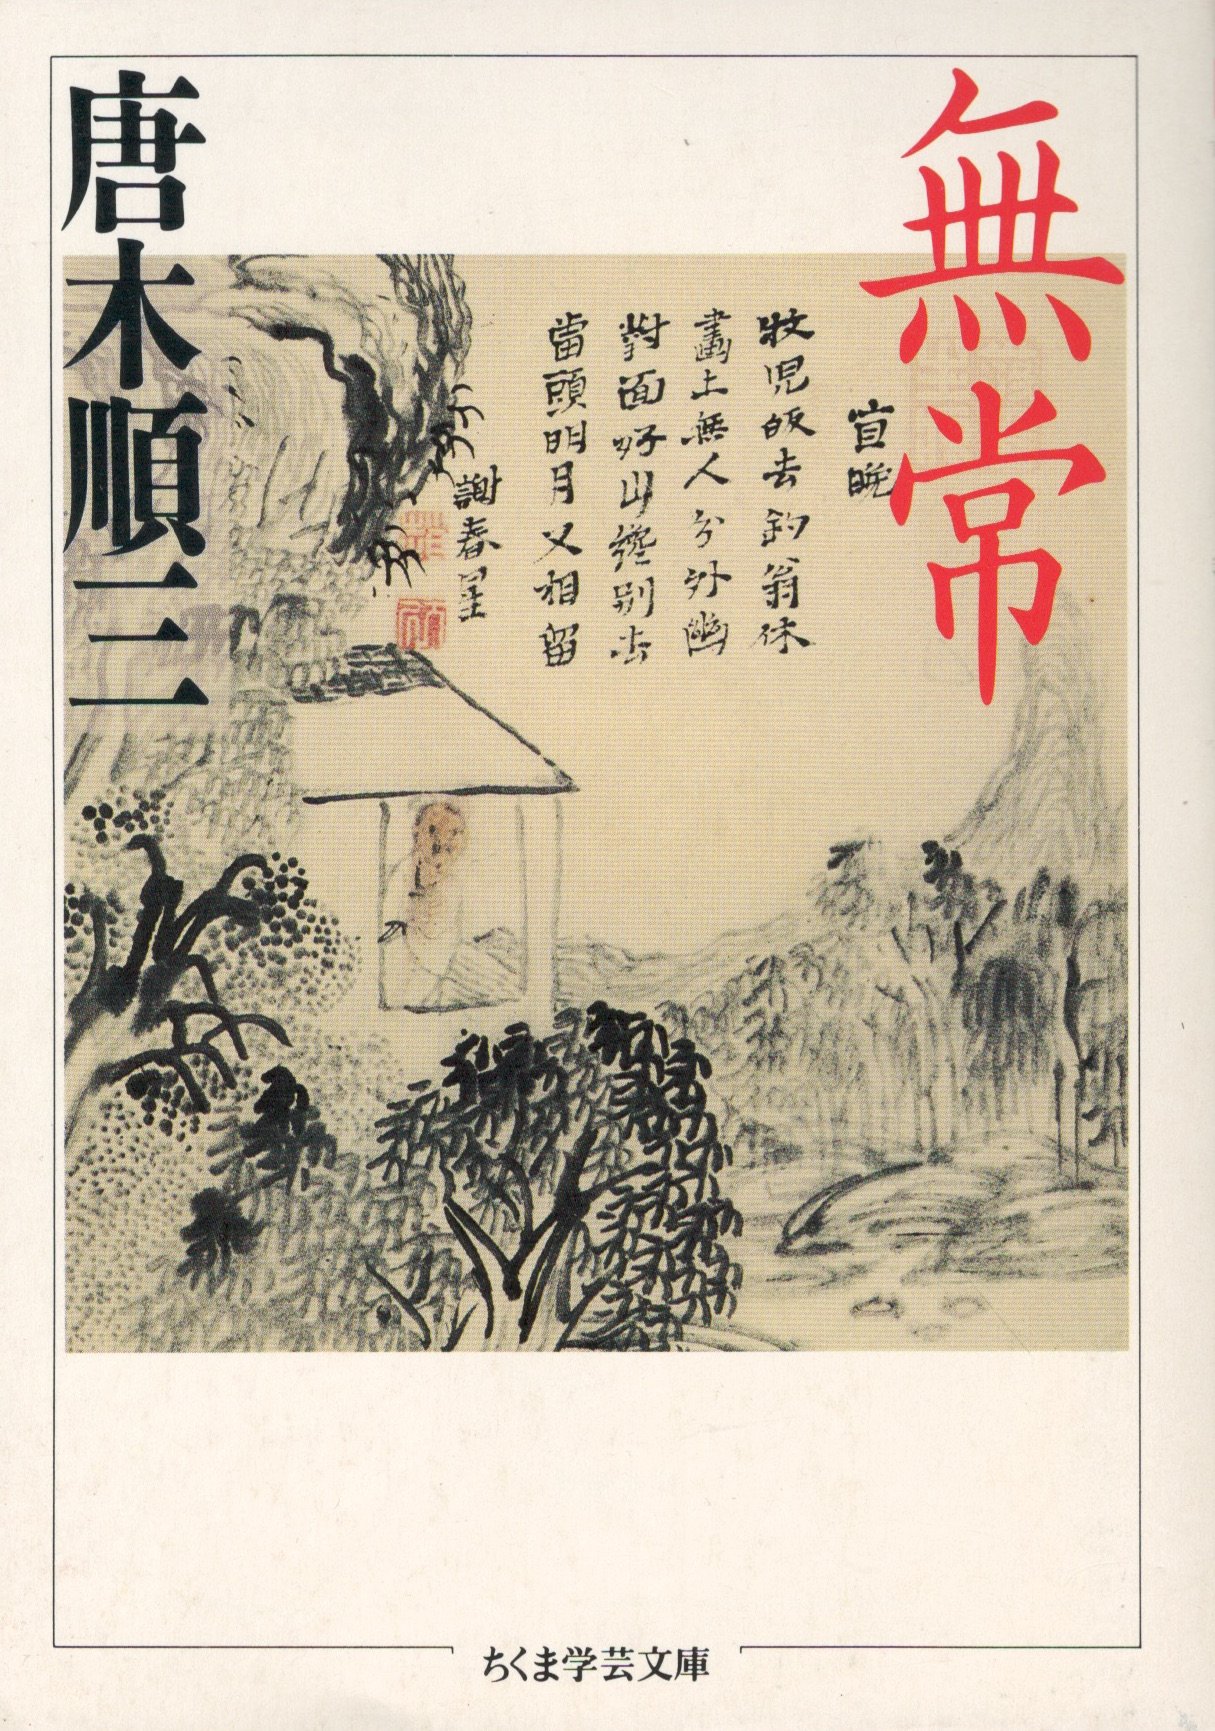 無常
宜晩
牧児皈去釣翁休
畫上無人分外幽
對面好山纔別去
當頭明月又相留
謝春星
唐木順三
ちくま学芸文庫